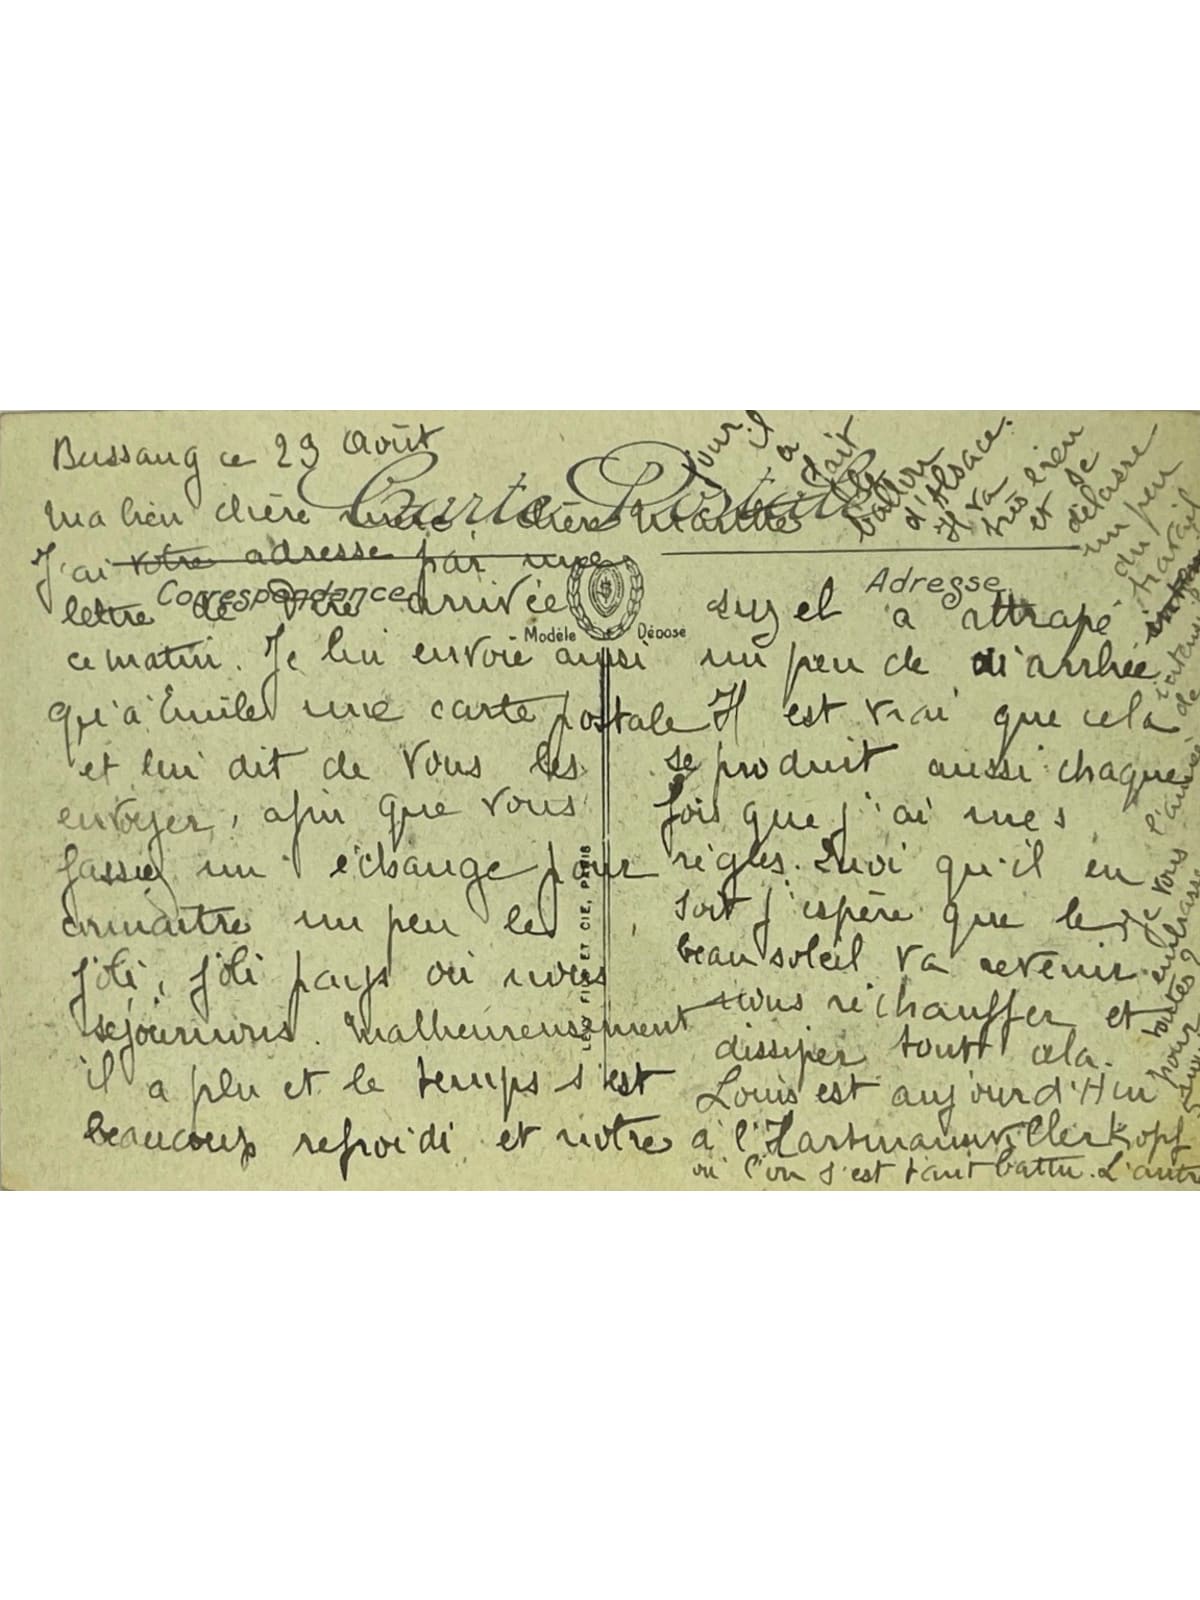 Bussang ce 29 Août
Carte Postale
Ma bien chère mère chère Marthe
J'ai votre adresse par une
Correspondance
lettre de Vve arrivée
Modèle Déposé
ce matin. Je lui envoie aussi
qu'à Emile une carte postale
et lui dit de vous les
envoyer, afin que vous
fassiez un échange pour
connaître un peu le
joli, joli pays où nous
séjournons. Malheureusement
il a plu et le temps s'est
beaucoup refroidi et notre
LEVY FILS ET CIE, PARIS
Adresse
Suzel a attrapé
un peu de diarrhée
Il est vrai que cela
se produit aussi chaque
fois que j'ai mes
règles. Quoi qu'il en
soit j'espère que le
beau soleil va revenir
nous réchauffer et
dissiper tout cela.
Louis est aujourd'Hui
à l'Hartmannvillerkopf
où l'on s'est tant battu. L'autre
jour il
a fait
ballon
d'Alsace.
Il va
très bien
et se
délasse
un peu
du
travail
intense
de
l'année
Je vous embrasse
toutes 2
pour